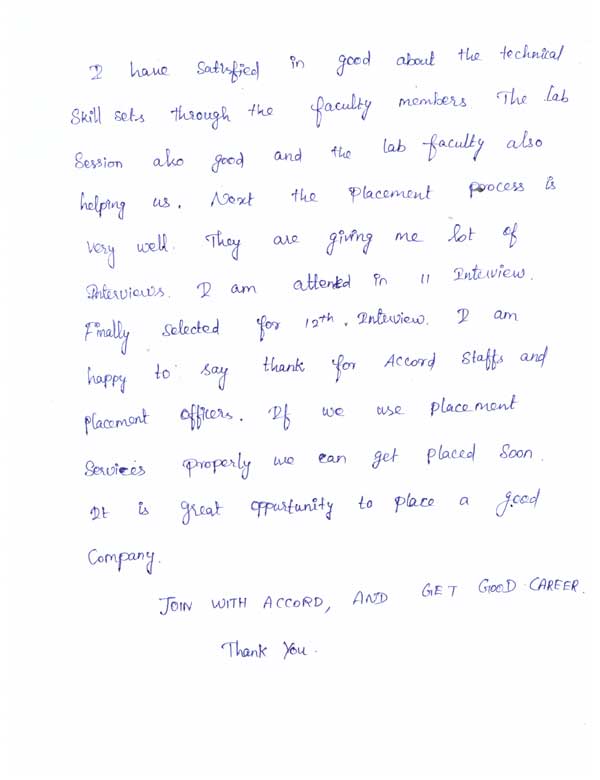 I have satisfied in good about the technical
Skill sets through the faculty members The lab
Session also good and the lab faculty also
helping us. Next the Placement process is
very well. They are giving me lot of
Interviews. I am attented in 11 Interview.
Finally selected for 12th. Interview. I am
happy to say thank for Accord Staffs and
placement officers. If we use placement
Services properly we can get placed soon.
It is great oppurtunity to place a good
Company.
JOIN WITH ACCORD, AND GET GOOD CAREER.
Thank You.